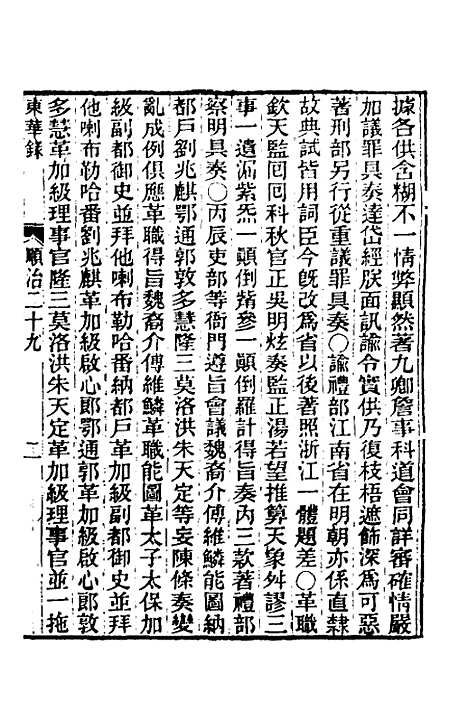 據各供含糊不一情弊顯然著九卿詹事科道會同詳審確情嚴
加議罪具奏達岱經朕面訊諭令實供乃復枝梧遮飾深爲可惡
著刑部另行從重議罪具奏○諭禮部江南省在明朝亦係直隸
故典試皆用詞臣今旣改爲省以後著照浙江一體題差○革職
欽天監囘囘科秋官正吳明炫奏監正湯若望推算天象舛謬三
事一遺漏紫炁一顚倒觜參一顚倒羅計得旨奏內三款著禮部
察明具奏○丙辰吏部等衙門遵旨會議魏裔介傅維鱗能圖納
都戶劉兆麒鄂通郭敦多慧隆三莫洛洪朱天定等妄陳條奏變
亂成例俱應革職得旨魏裔介傅維鱗革職能圖革太子太保加
級副都御史並拜他喇布勒哈番納都戶革加級副都御史並拜
他喇布勒哈番劉兆麒革加級啟心郞鄂通郭革加級啟心郞敦
多慧革加級理事官隆三莫洛洪朱天定革加級理事官並一拖
東華錄 順治二十九 二